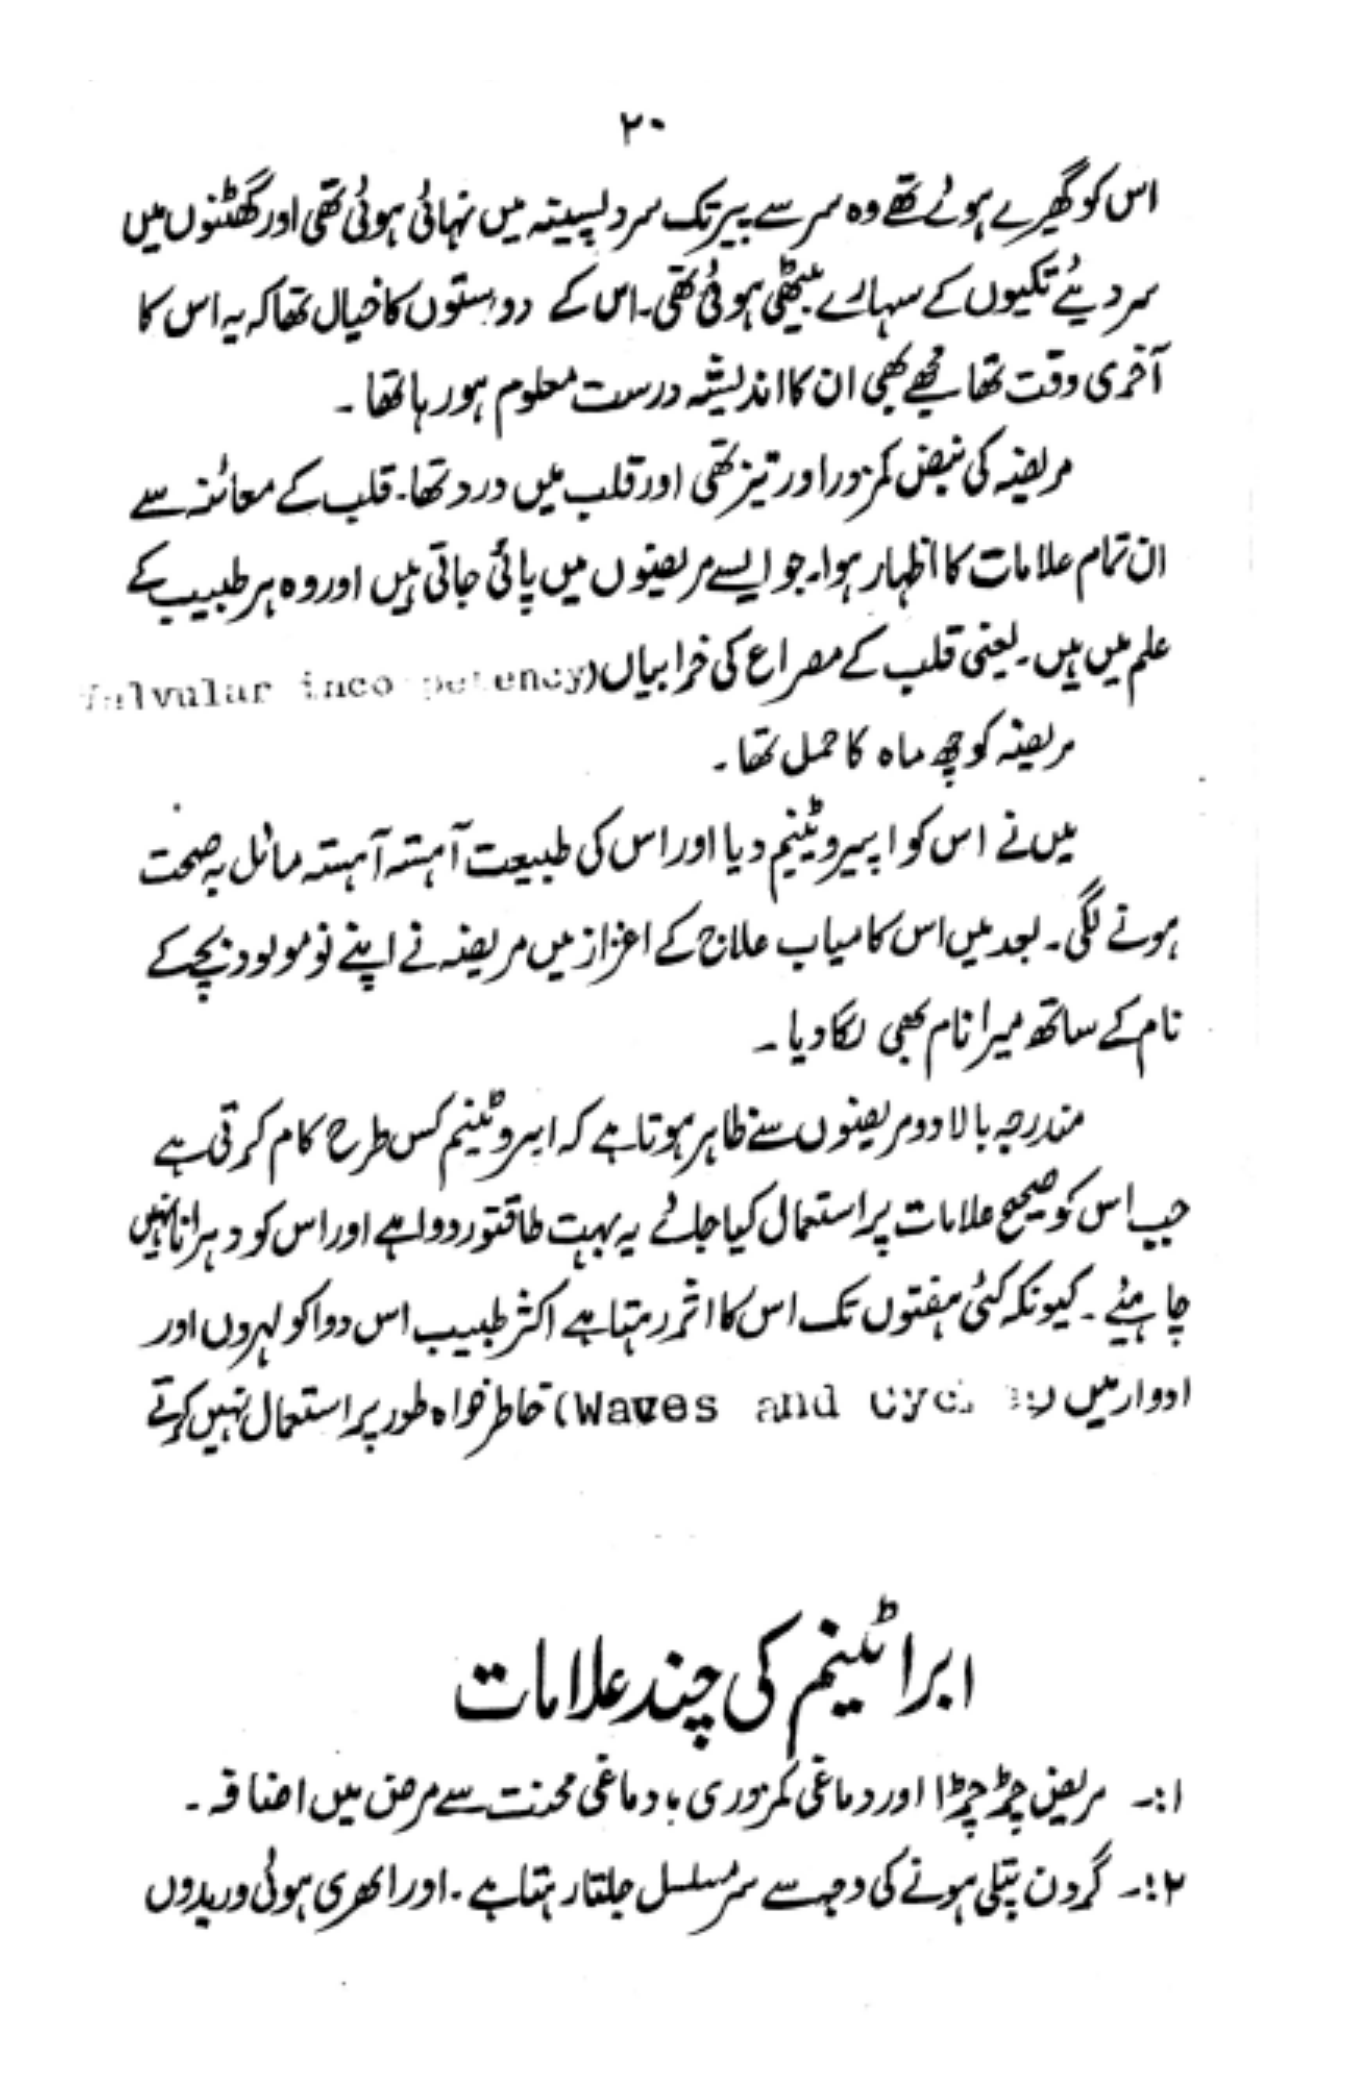 ۲۰
اس کو گھیرے ہوئے تھے وہ سر سے پیر تک سرد پسینہ میں نہائی ہوئی تھی اور گھٹنوں میں
سر دیئے تکیوں کے سہارے بیٹھی ہوئی تھی۔ اس کے دوستوں کا خیال تھا کہ یہ اس کا
آخری وقت تھا مجھے بھی ان کا اندیشہ درست معلوم ہو رہا تھا۔
مریضہ کی نبض کمزور اور تیز تھی اور قلب میں درد تھا۔ قلب کے معائنہ سے
ان تمام علامات کا اظہار ہوا۔ جو ایسے مریضوں میں پائی جاتی ہیں اور وہ ہر طبیب کے
علم میں ہیں۔ یعنی قلب کے مصراع کی خرابیاں (Valvular incompetency
مریضہ کو چھ ماہ کا حمل تھا۔
میں نے اس کو ایپروٹینم دیا اور اس کی طبیعت آہستہ آہستہ مائل بہ صحت
ہونے لگی۔ بعد میں اس کامیاب علاج کے اعزاز میں مریضہ نے اپنے نو مولود بچے کے
نام کے ساتھ میرا نام بھی لگا دیا۔
مندرجہ بالا دو مریضوں سے ظاہر ہوتا ہے کہ ابروٹینم کس طرح کام کرتی ہے
جب اس کو صحیح علامات پر استعمال کیا جائے یہ بہت طاقتور دوا ہے اور اس کو دہرانا نہیں
چاہیئے۔ کیونکہ کئی ہفتوں تک اس کا اثر رہتا ہے اکثر طبیب اس دوا کو لہروں اور
ادوار میں (Waves and) خاطر خواہ طور پر استعمال نہیں کرتے
ابراٹینم کی چند علامات
۱:۔ مریض چڑچڑا اور دماغی کمزوری یا دماغی محنت سے مرض میں اضافہ۔
۲:۔ گردن پتلی ہونے کی وجہ سے سر مسلسل ہلتا رہتا ہے۔ اور ابھری ہوئی وریدوں